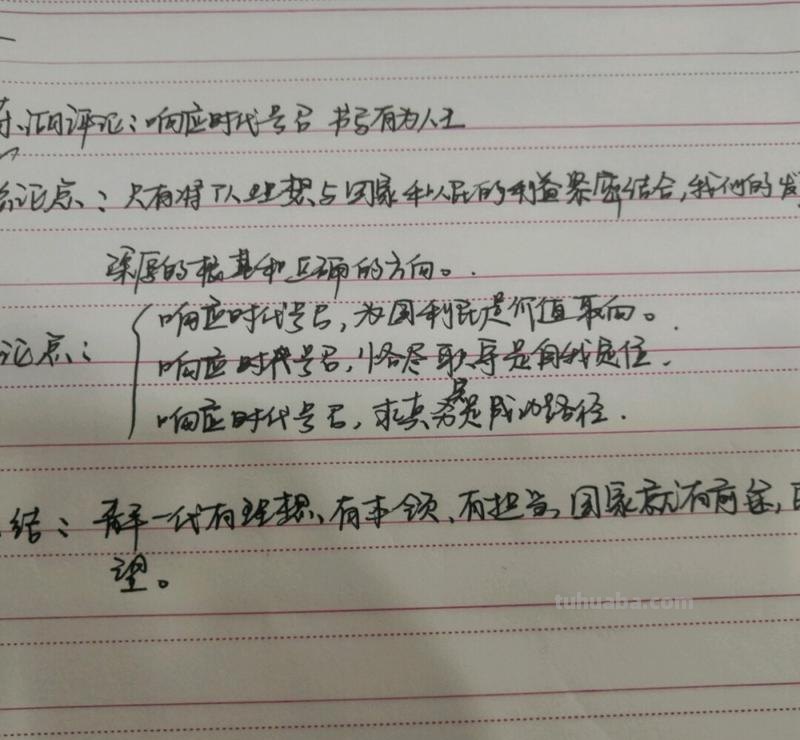 汇评论:响应时代号召 书写有为人生
总论点:只有将个人理想与国家和人民的利益紧密结合,我们的发
深厚的根基和正确的方向。
论点:
响应时代号召,为国利民是价值取向。
响应时代号召,恪尽职守是自我定位.
响应时代号召,求真务实是成功路径.
结:青年一代有理想、有本领、有担当,国家就有前途,民
望。
tuhuaba.com